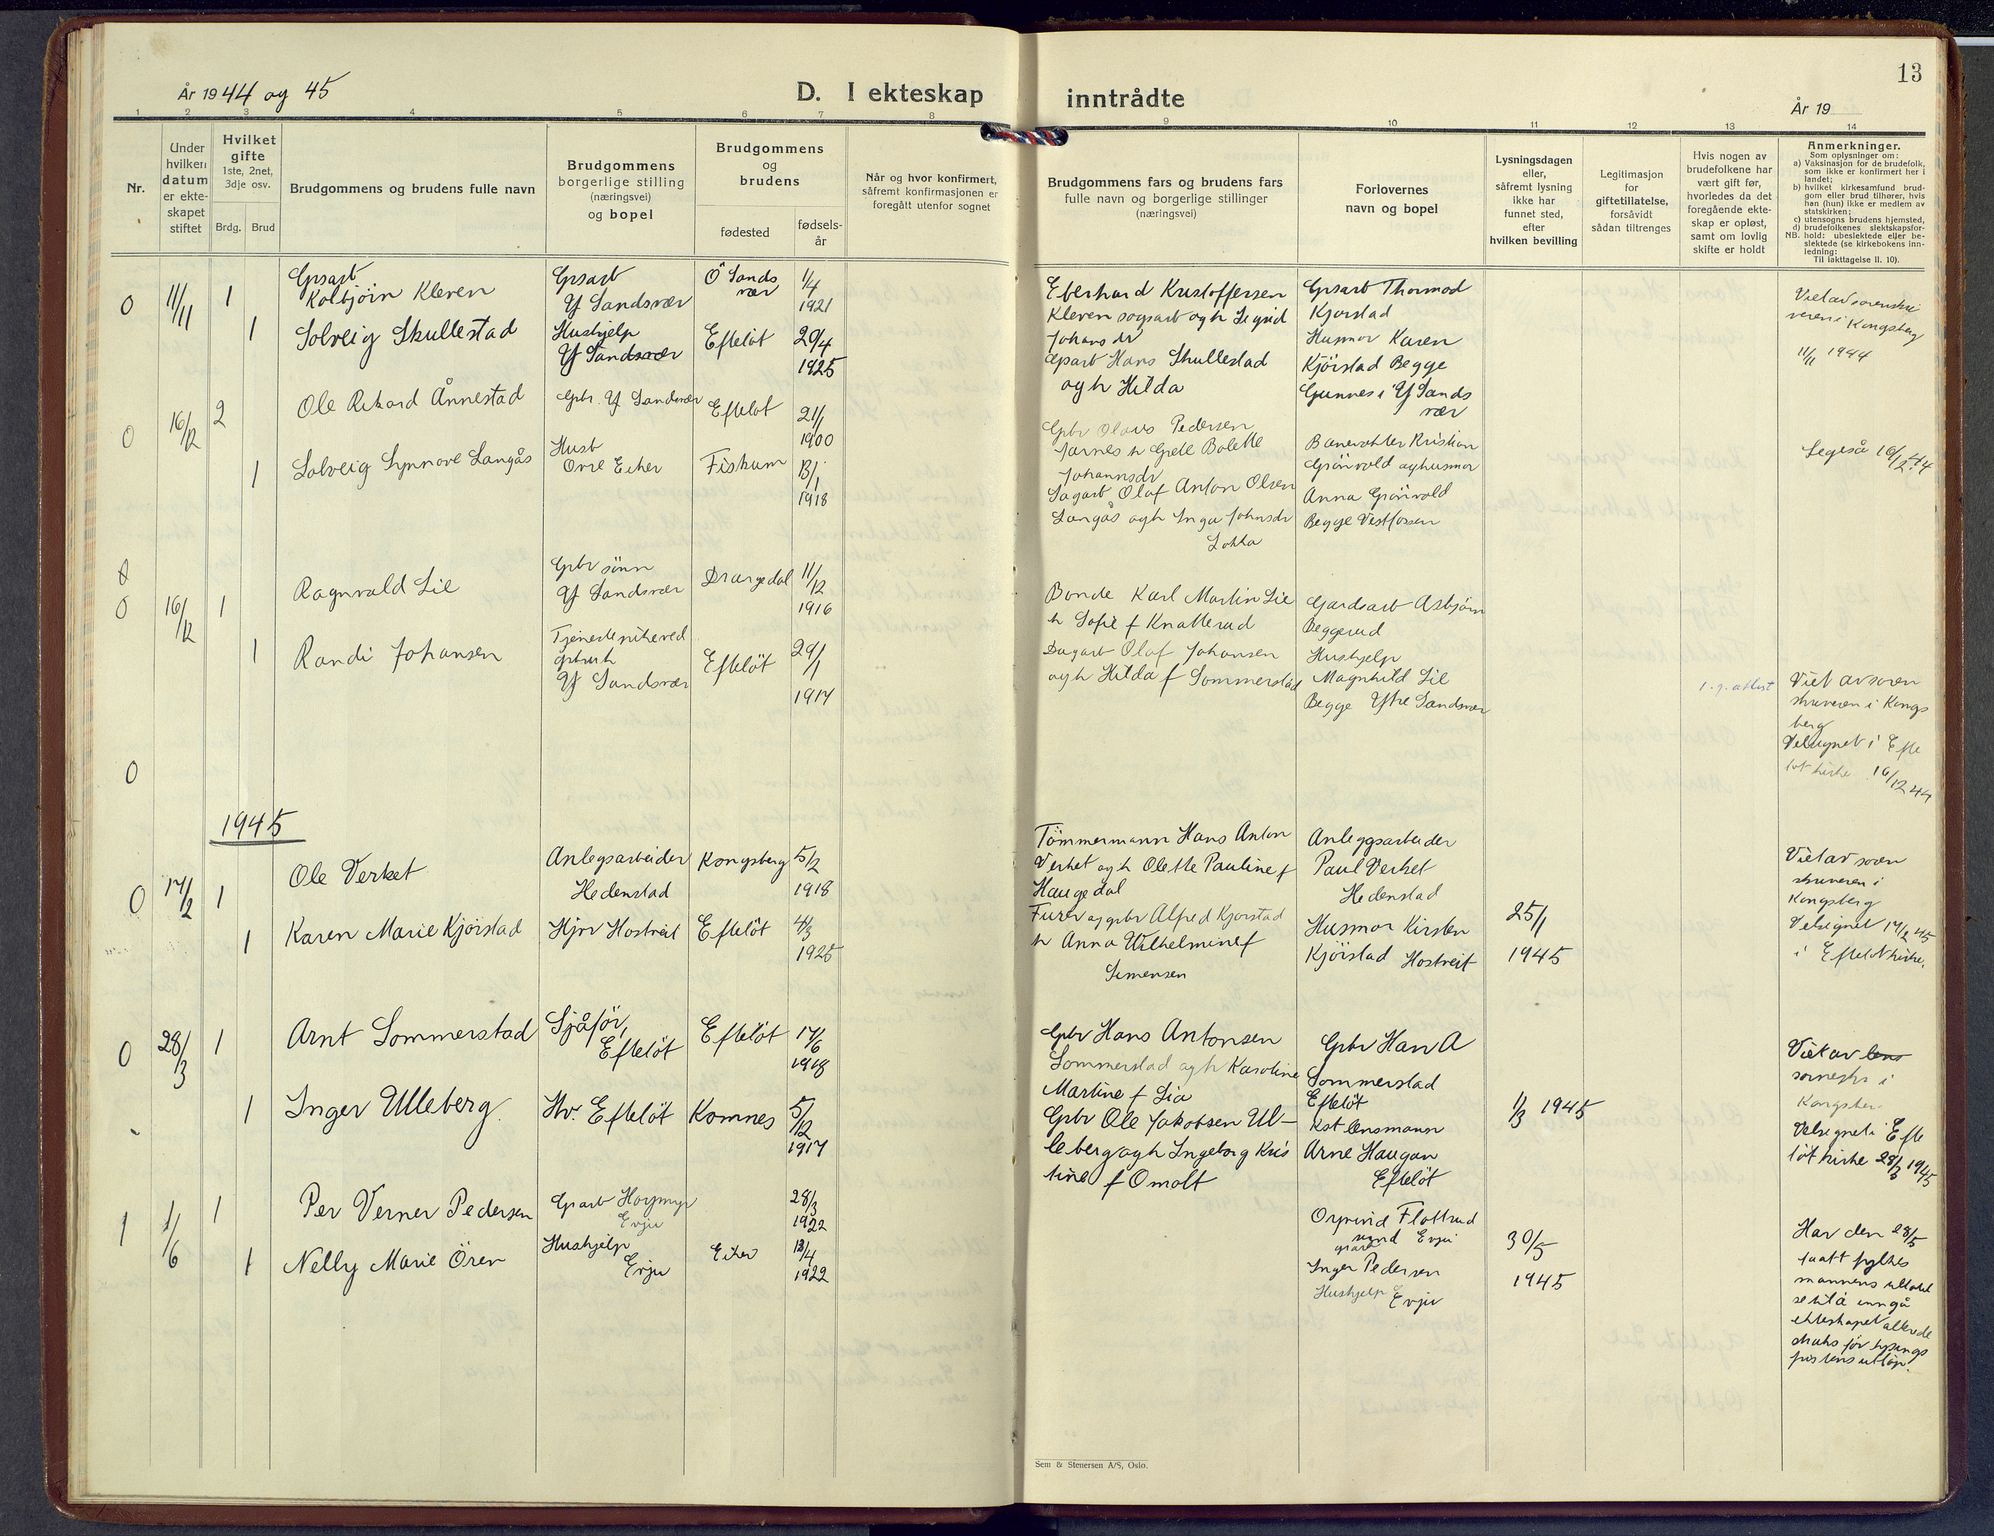 År 1944 og 45
D. I ekteskap
inntrådte
13
År 19
1 2 3 4 5 6 7 8 9 10 11 12 13 14
Nr.
Under hvilken datum er ekteskapet stiftet
Hvilket gifte
1ste, 2net, 3dje osv.
Brdg. Brud
Brudgommens og brudens fulle navn
Brudgommens borgerlige stilling (næringsvei) og bopel
Brudgommens og brudens
fødested
fødselsår
Når og hvor konfirmert, såfremt konfirmasjonen er foregått utenfor sognet
Brudgommens fars og brudens fars
fulle navn og borgerlige stillinger
(næringsvei)
Forlovernes
navn og bopel
Lysningsdagen eller, såfremt lysning ikke har funnet sted, efter hvilken bevilling
Legitimasjon for giftetillatelse, forsåvidt sådan tiltrenges
Hvis nogen av brudefolkene har vært gift før, hvorledes da det foregående ekteskap er opløst, samt om lovlig skifte er holdt
Anmerkninger.
Som oplysninger om:
a) Vaksinasjon for de brudefolk, som ikke er konfirmert her i landet;
b) hvilket kirkesamfund brudgom eller brud tilhører, hvis han (hun) ikke er medlem av statskirken;
c) utensogns brudens hjemsted,
d) brudefolkenes slektskapsforhold: ubeslektede eller beslektede (se kirkebokens innledning:
NB.
Til iakttagelse II. 10).
0 11/11 1
Gpsarb
Kolbjørn Kleven
Gpsarb
Y Sandsvær
Ö Sands
vær
1/4
1921
Eberhard Kristoffersen
Kleven sogsarb og h Sigrid
Johansdr
Gpsarb Thormod
Kjørstad
Viet av sorenskri
veren i Kongsberg
11/11 1944
1
Solveig Skullestad
Hushjelp
Y Sandsvær
Efteløt
29/4
1925
Gparb Hans Skullestad
og h Hilda
Husmor Karen
Kjörstad Begge
Gunnes i Y Sands
vær
0 16/12 2
Ole Rikard Ånnestad
Gbr. Y Sandsvær
Efteløt
21/1
1900
Gpbr Olavs Pedersen
Jarnes h Grete Bolette
Johannsdr
Banevokter Kristian
Grönvold og husmor
Anna Grönvold
Begge Vestfossen
1
Solveig Synnøve Langås
Husb
Ovre Eiker
Fiskum
13/1
1918
Sagarb Olaf Anton Olsen
Langås og h Inga Johnsdr
Lokka
16/12 44
0 16/12 1
Ragnvald Lie
Gpbr sönn
Y Sandsvær
Drangedal
11/12
1916
Bonde Karl Martin Lie
h Sofie f Knatterud
Gardsarb Asbjörn
Beggerud
1
Randi Johansen
Tjenestepike ved
Y Sandsvær
Efteløt
29/1
1917
Dagarb Olaf Johansen
og h Hilda f Sommerstad
Hushjelp
Magnhild Lie
Begge Ytre Sandsvær
Viet av soren
skriveren i Kongs
berg
Velsignet i Efte
løt kirke 16/12 44
0
1945
0 17/2 1
Ole Verket
Anlegsarbeider
Hedenstad
Kongsberg
5/2
1918
Tömmermann Hans Anton
Verket og h Olette Pauline f
Haugedal
Anleggsarbeider
Paul Verket
Hedenstad
Viet av soren
skriveren i
Kongsberg
Velsignet 17/2 45
i Efteløt kirke.
1
Karen Marie Kjørstad
Hjv Hostveit
Efteløt
4/3
1925
Furer og gpbr Alfred Kjørstad
h Anna Wilhelmine f
Simensen
Husmor Kirsten
Kjörstad Hostveit
25/1
1945
0 28/3 1
Arnt Sommerstad
Sjåför,
Efteløt
Efteløt
17/6
1918
Gpbr Hans Antonsen
Sommerstad og h Karoline
Martine f Lia
Gpbr Han A
Sommerstad
Efteløt
Viet av lens
sornskr i
Kongsber
Velsignet i Efte
løt kirke 28/3 1945
1
Inger Ulleberg.
Hv. Efteløt
Komnes
5/12
1917
Gpbr Ole Jakobsen Ul-
leberg og h Ingeborg Kris
tine f Omolt
Kst lensmann
Arne Haugan
Efteløt
1/3 1945
1 1/6 1
Per Verner Pedersen
Gparb
Evju
28/3
1922
Oyvind Flottrud
Evju
30/5
1945
1
Nelly Marie Ören
Hushjelp
Evju
Eiker
13/4
1922
Inger Pedersen
Hushjelp
Evju
Har den 28/5
faatt fylkes
mannens tillatel
se til å inngå
ekteskapet allerede
straks før lysnings
fristens utløp.
Sem & Stenersen A/S, Oslo.